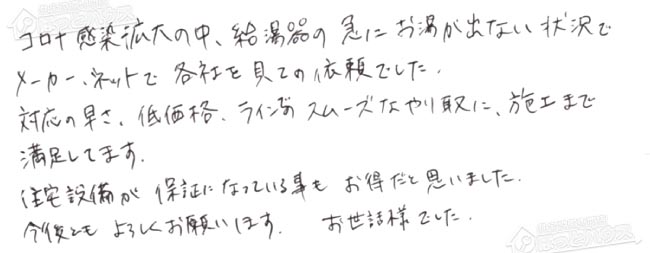 コロナ感染拡大の中、給湯器の急にお湯が出ない状況で
メーカー、ネットで各社を見ての依頼でした.
対応の早さ、低価格、ラインのスムーズなやり取に、施工まで
満足してます.
住宅設備が保証になっている事もお得だと思いました.
今後ともよろしくお願いします. お世話様でした.